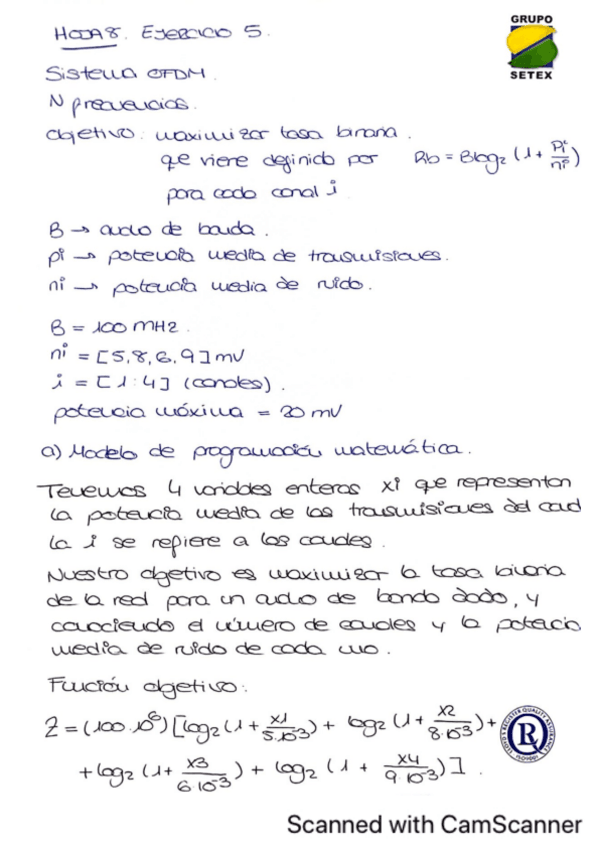 HOJA 8. EJERCICIO 5.
GRUPO
SETEX
Sistema OFDM.
N frecuencias.
Objetivo: maximizar tasa binaria.
que viene definido por Rb = Blog₂(1+ pi/ni)
para cada canal i
B → ancho de banda.
pi → potencia media de transmisiones.
ni → potencia media de ruido.
B = 100 MHz.
ni = [5,8,6,9] mV
i = [1:4] (canales).
potencia máxima = 20 mV
a) Modelo de programación matemática.
Tenemos 4 variables enteras xi que representan
la potencia media de las transmisiones del canal
la i se refiere a los canales.
Nuestro objetivo es maximizar la tasa binaria
de la red para un ancho de banda dado, y
conociendo el número de canales y la potencia
media de ruido de cada uno.
Función objetivo:
Z = (100·10⁶)[log₂(1+ x1/5·10⁻³) + log₂(1+ x2/8·10⁻³)+
+log₂(1+ x3/6·10⁻³) + log₂(1+ x4/9·10⁻³)].
Scanned with CamScanner